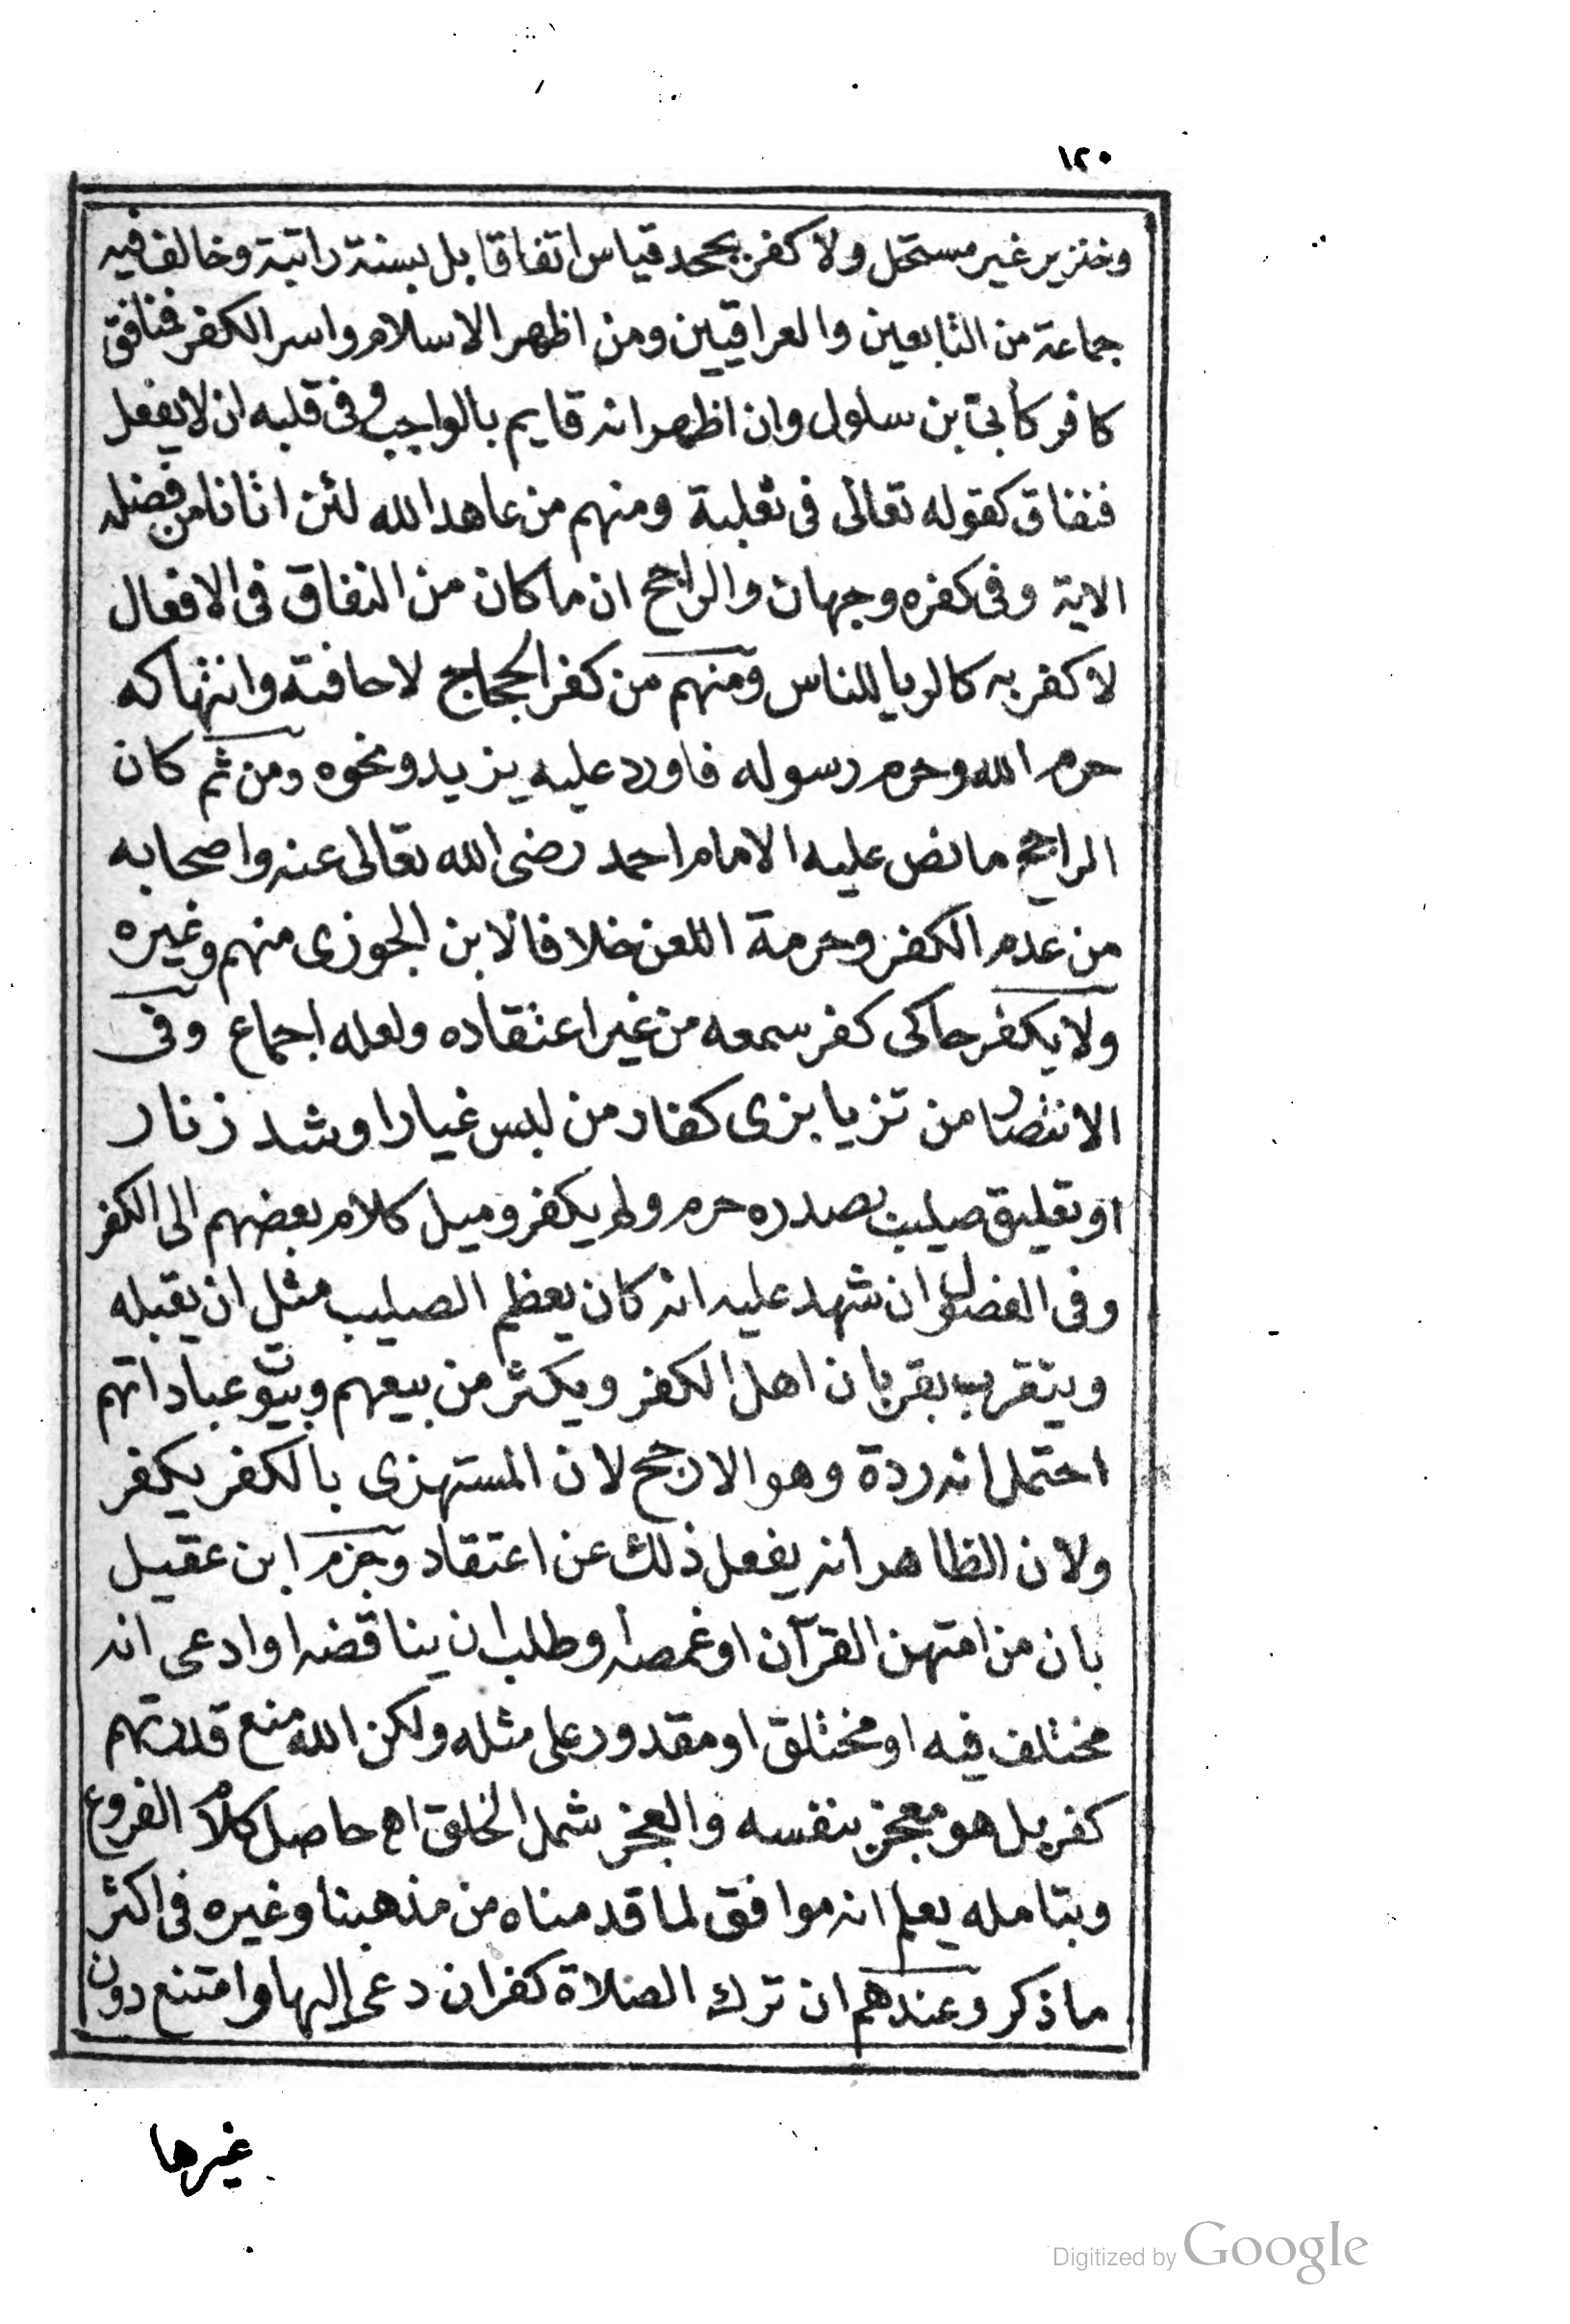 ١٢٠
وخنزير غير مستحل ولا كفر بجحد قياس اتفاقا بل بسنة راتبة وخالف فيه
جماعة من التابعين والعراقيين ومن اظهر الاسلام واسر الكفر فمنافق
كافر كأبي بن سلول وان اظهر انه قايم بالواجب وفي قلبه ان لا يفعل
فنفاق كقوله تعالى في ثعلبة ومنهم من عاهد الله لئن اتانا من فضله
الاية وفي كفره وجهان والراجح ان ما كان من النفاق في الافعال
لا كفر به كالريا للناس ومنهم من كفر الحجاج لاخافته وانتهاكه
حرم الله وحرم رسوله فاورد عليه يزيد ونحوه ومن ثم كان
الراجح ما نص عليه الامام احمد رضى الله تعالى عنه واصحابه
من عدم الكفر وحرمة اللعن خلافا لابن الجوزى منهم وغيره
ولا يكفر حاكى كفر سمعه من غير اعتقاده ولعله اجماع وفى
الانتصار من تزيا بزى كفار من لبس غيار او شد زنار
او تعليق صليب بصدره حرم ولم يكفر وميل كلام بعضهم الى الكفر
وفى الفصول ان شهد عليه انه كان يعظم الصليب مثل ان يقبله
ويتقرب بقربان اهل الكفر ويكثر من بيعهم وبيوت عباداتهم
احتمل انه ردة وهو الارجح لان المستهزى بالكفر يكفر
ولان الظاهر انه يفعل ذلك عن اعتقاد وجزم ابن عقيل
بان من امتهن القرآن او غمصه او طلب ان يناقضه او ادعى انه
مختلف فيه او مختلق او مقدور على مثله ولكن الله منع قدرتهم
كفر بل هو معجز بنفسه والعجز شمل الخلق اه حاصل كلام الفروع
وبتامله يعلم انه موافق لما قدمناه من مذهبنا وغيره فى اكثر
ما ذكر وعندهم ان ترك الصلاة كفر ان دعى إليها وامتنع دون
غيرها
Digitized by Google